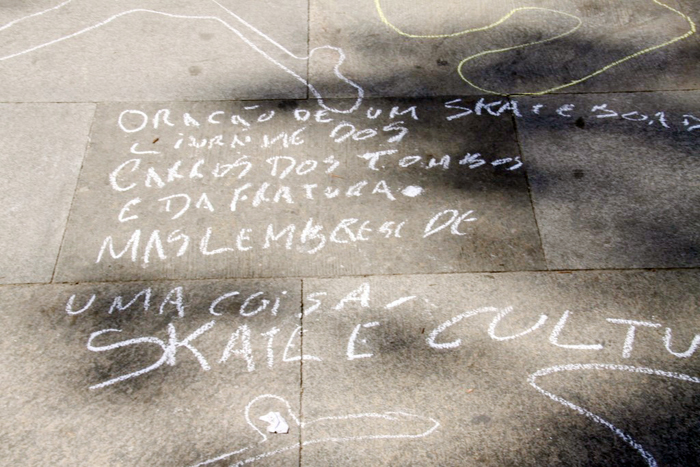 ORAÇÃO DE UM SKATEBOARD
LIVRAI-ME DOS
CARROS DOS TOMBOS
E DA FRATURA.
MAS LEMBRESE DE
UMA COISA -
SKATE E CULTU